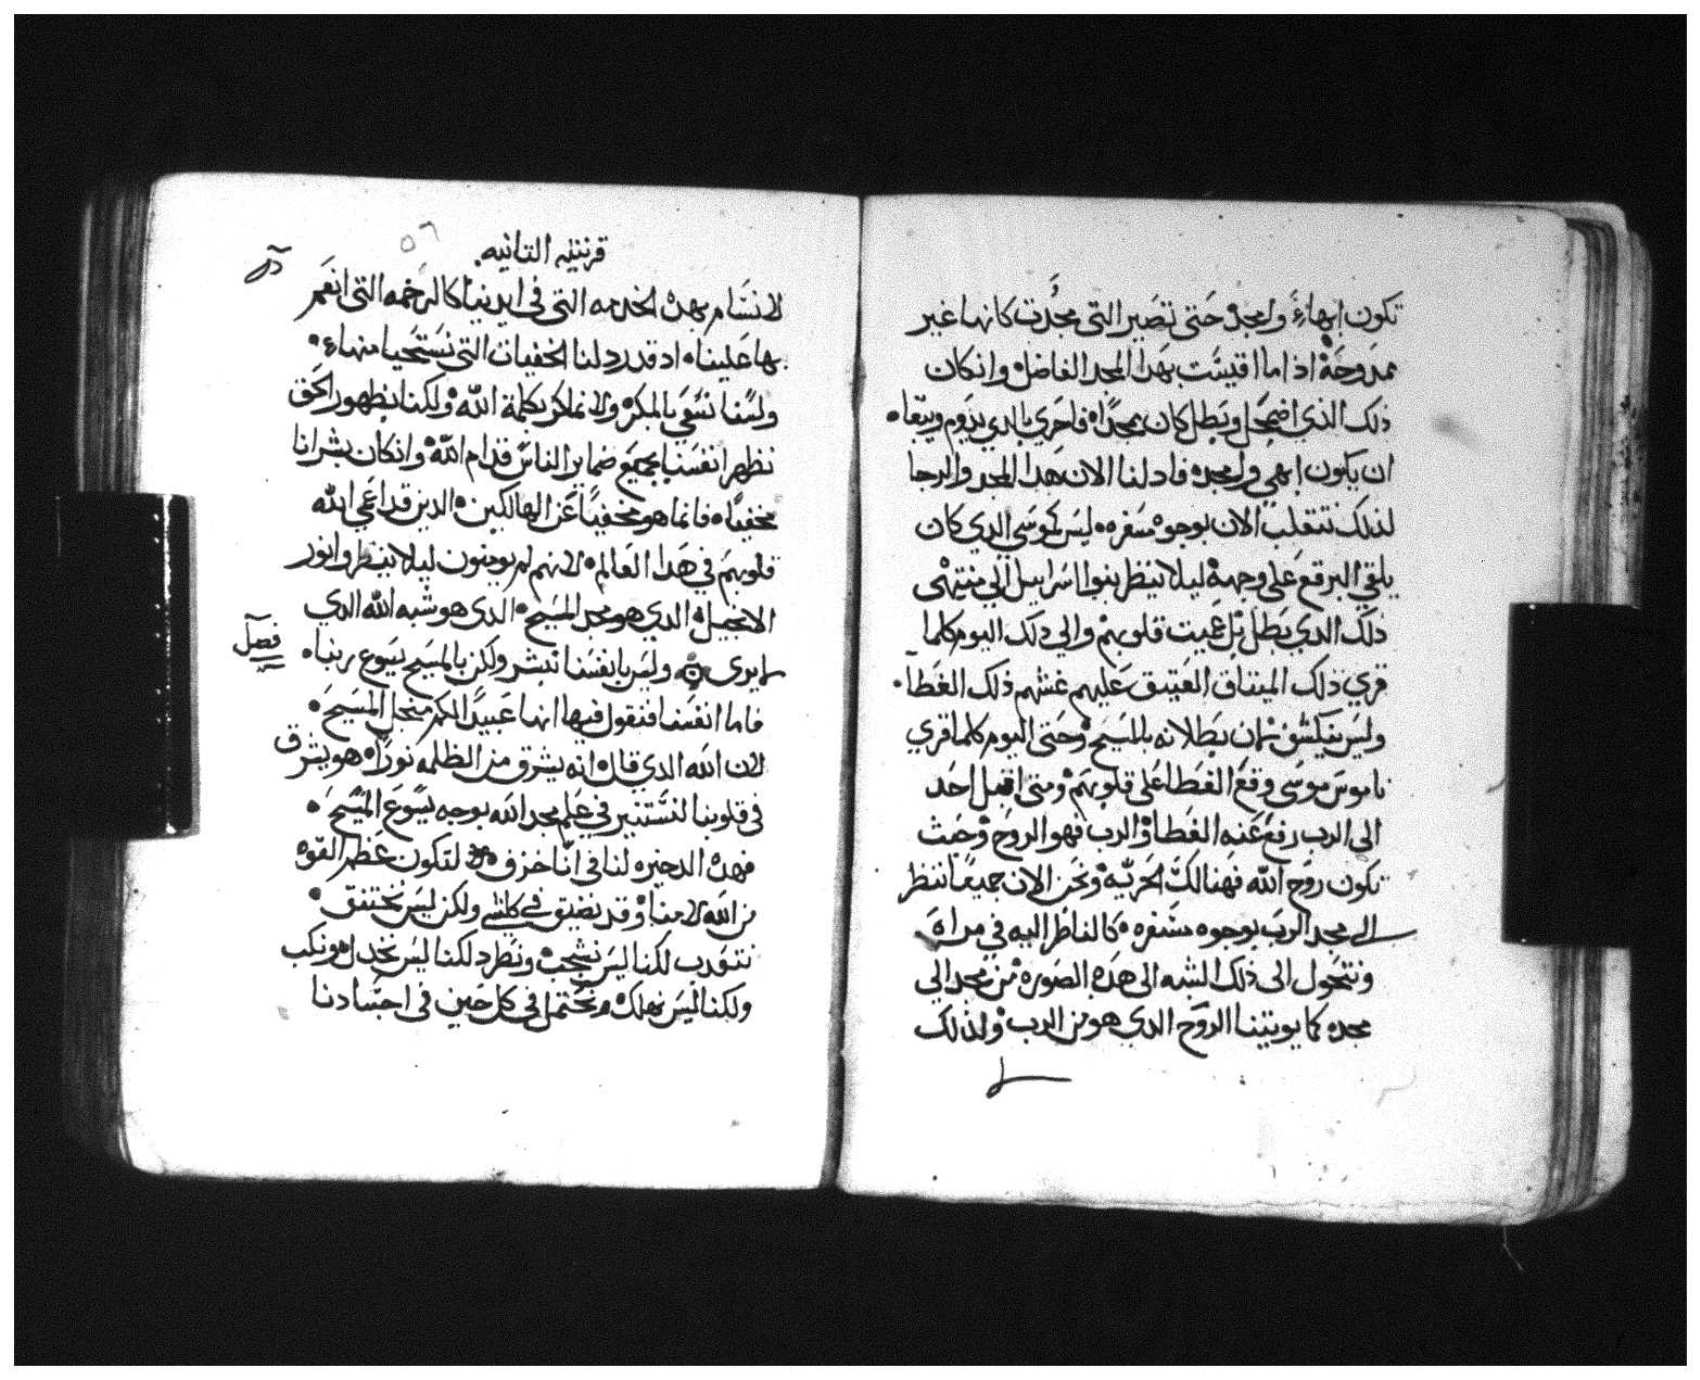 تكون ابهاء وامجد حتى تصير التى مجدت كانها غير
ممدوحة اذا ما اقيست بهدا المجد الفاضل وان كان
ذلك الذي اضمحل وبطل كان بمجدا فاحري بالدي يدوم ويبقا
ان يكون ابهي وامجد فاد لنا الان هدا المجد والرجا
لذلك نتقلب الان بوجوه مسفره ليس كموسي الدي كان
يلقي البرقع على وجهه ليلا ينظر بنوا اسراييل الي منتهى
ذلك الدي بطل بل عميت قلوبهم والي دلك اليوم كلما
قري ذلك الميتاق العتيق عليهم غشهم ذلك الغطا
وليس ينكشف بان بطلانه بالمسيح وحتى اليوم كلما قري
ناموس موسى وقع الغطا على قلوبهم ومتى اقبل احد
الى الرب رفع عنه الغطا والرب فهو الروح وحيث
تكون روح الله فهنالك الحريه ونحن الان جميعا ننظر
الى مجد الرب بوجوه مسفره كالناظر اليه في مراه
ونتحول الى ذلك الشبه الى هده الصوره من مجد الي
مجد كما يوتينا الروح الدي هو من الرب ولذلك
قرنتيه التانيه
٥٦
لا نسام بهده الخدمه التى في ايدينا كالرحمه التى انعم
بها علينا اد قد رد لنا الخفيات التى نستحيا منها
ولسنا نسعى بالمكر ولا نماكر بكلمة الله ولكنا بظهور الحق
نظهر انفسنا بجميع ضماير الناس قدام الله وان كان بشرانا
مخفيا فانما هو مخفيا عن الهالكين الدين قد اعمي الله
قلوبهم في هدا العالم لانهم لم يومنون ليلا ينظروا نور
الانجيل الدي هو مجد المسيح الدى هو شبه الله الدي
لا يرى وليس بانفسنا نبشر ولكن بالمسيح يسوع ربنا
فصل
فاما انفسنا فنقول فيها انها عبيدا لكم من اجل المسيح
لان الله الدي قال انه يشرق من الظلمه نورا هو يشرق
في قلوبنا لنستنير في علم مجد الله بوجه يسوع المسيح
فهده الدخيره لنا في انا خزف لتكون عظم القوه
من الله لا منا وقد نضيق في كلشي ولكن ليس نختنق
نتعدب لكنا ليس نشجب ونطرد لكنا ليس نخدل ونكب
ولكنا ليس نهلك ونحتمل في كل حين في اجسادنا